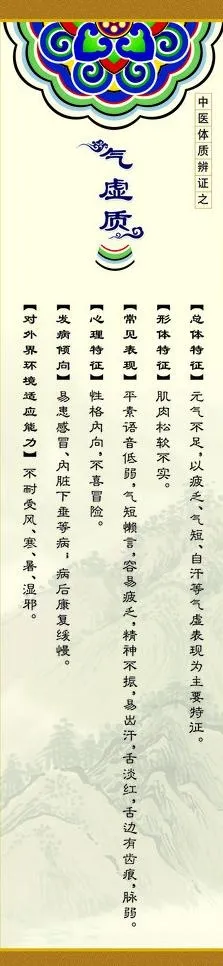 中医体质辨证之
气虚质
【总体特征】元气不足,以疲乏、气短、自汗等气虚表现为主要特征。
【形体特征】肌肉松软不实。
【常见表现】平素语音低弱,气短懒言,容易疲乏,精神不振,易出汗,舌淡红,舌边有齿痕,脉弱。
【心理特征】性格内向,不喜冒险。
【发病倾向】易患感冒、内脏下垂等病;病后康复缓慢。
【对外界环境适应能力】不耐受风、寒、暑、湿邪。